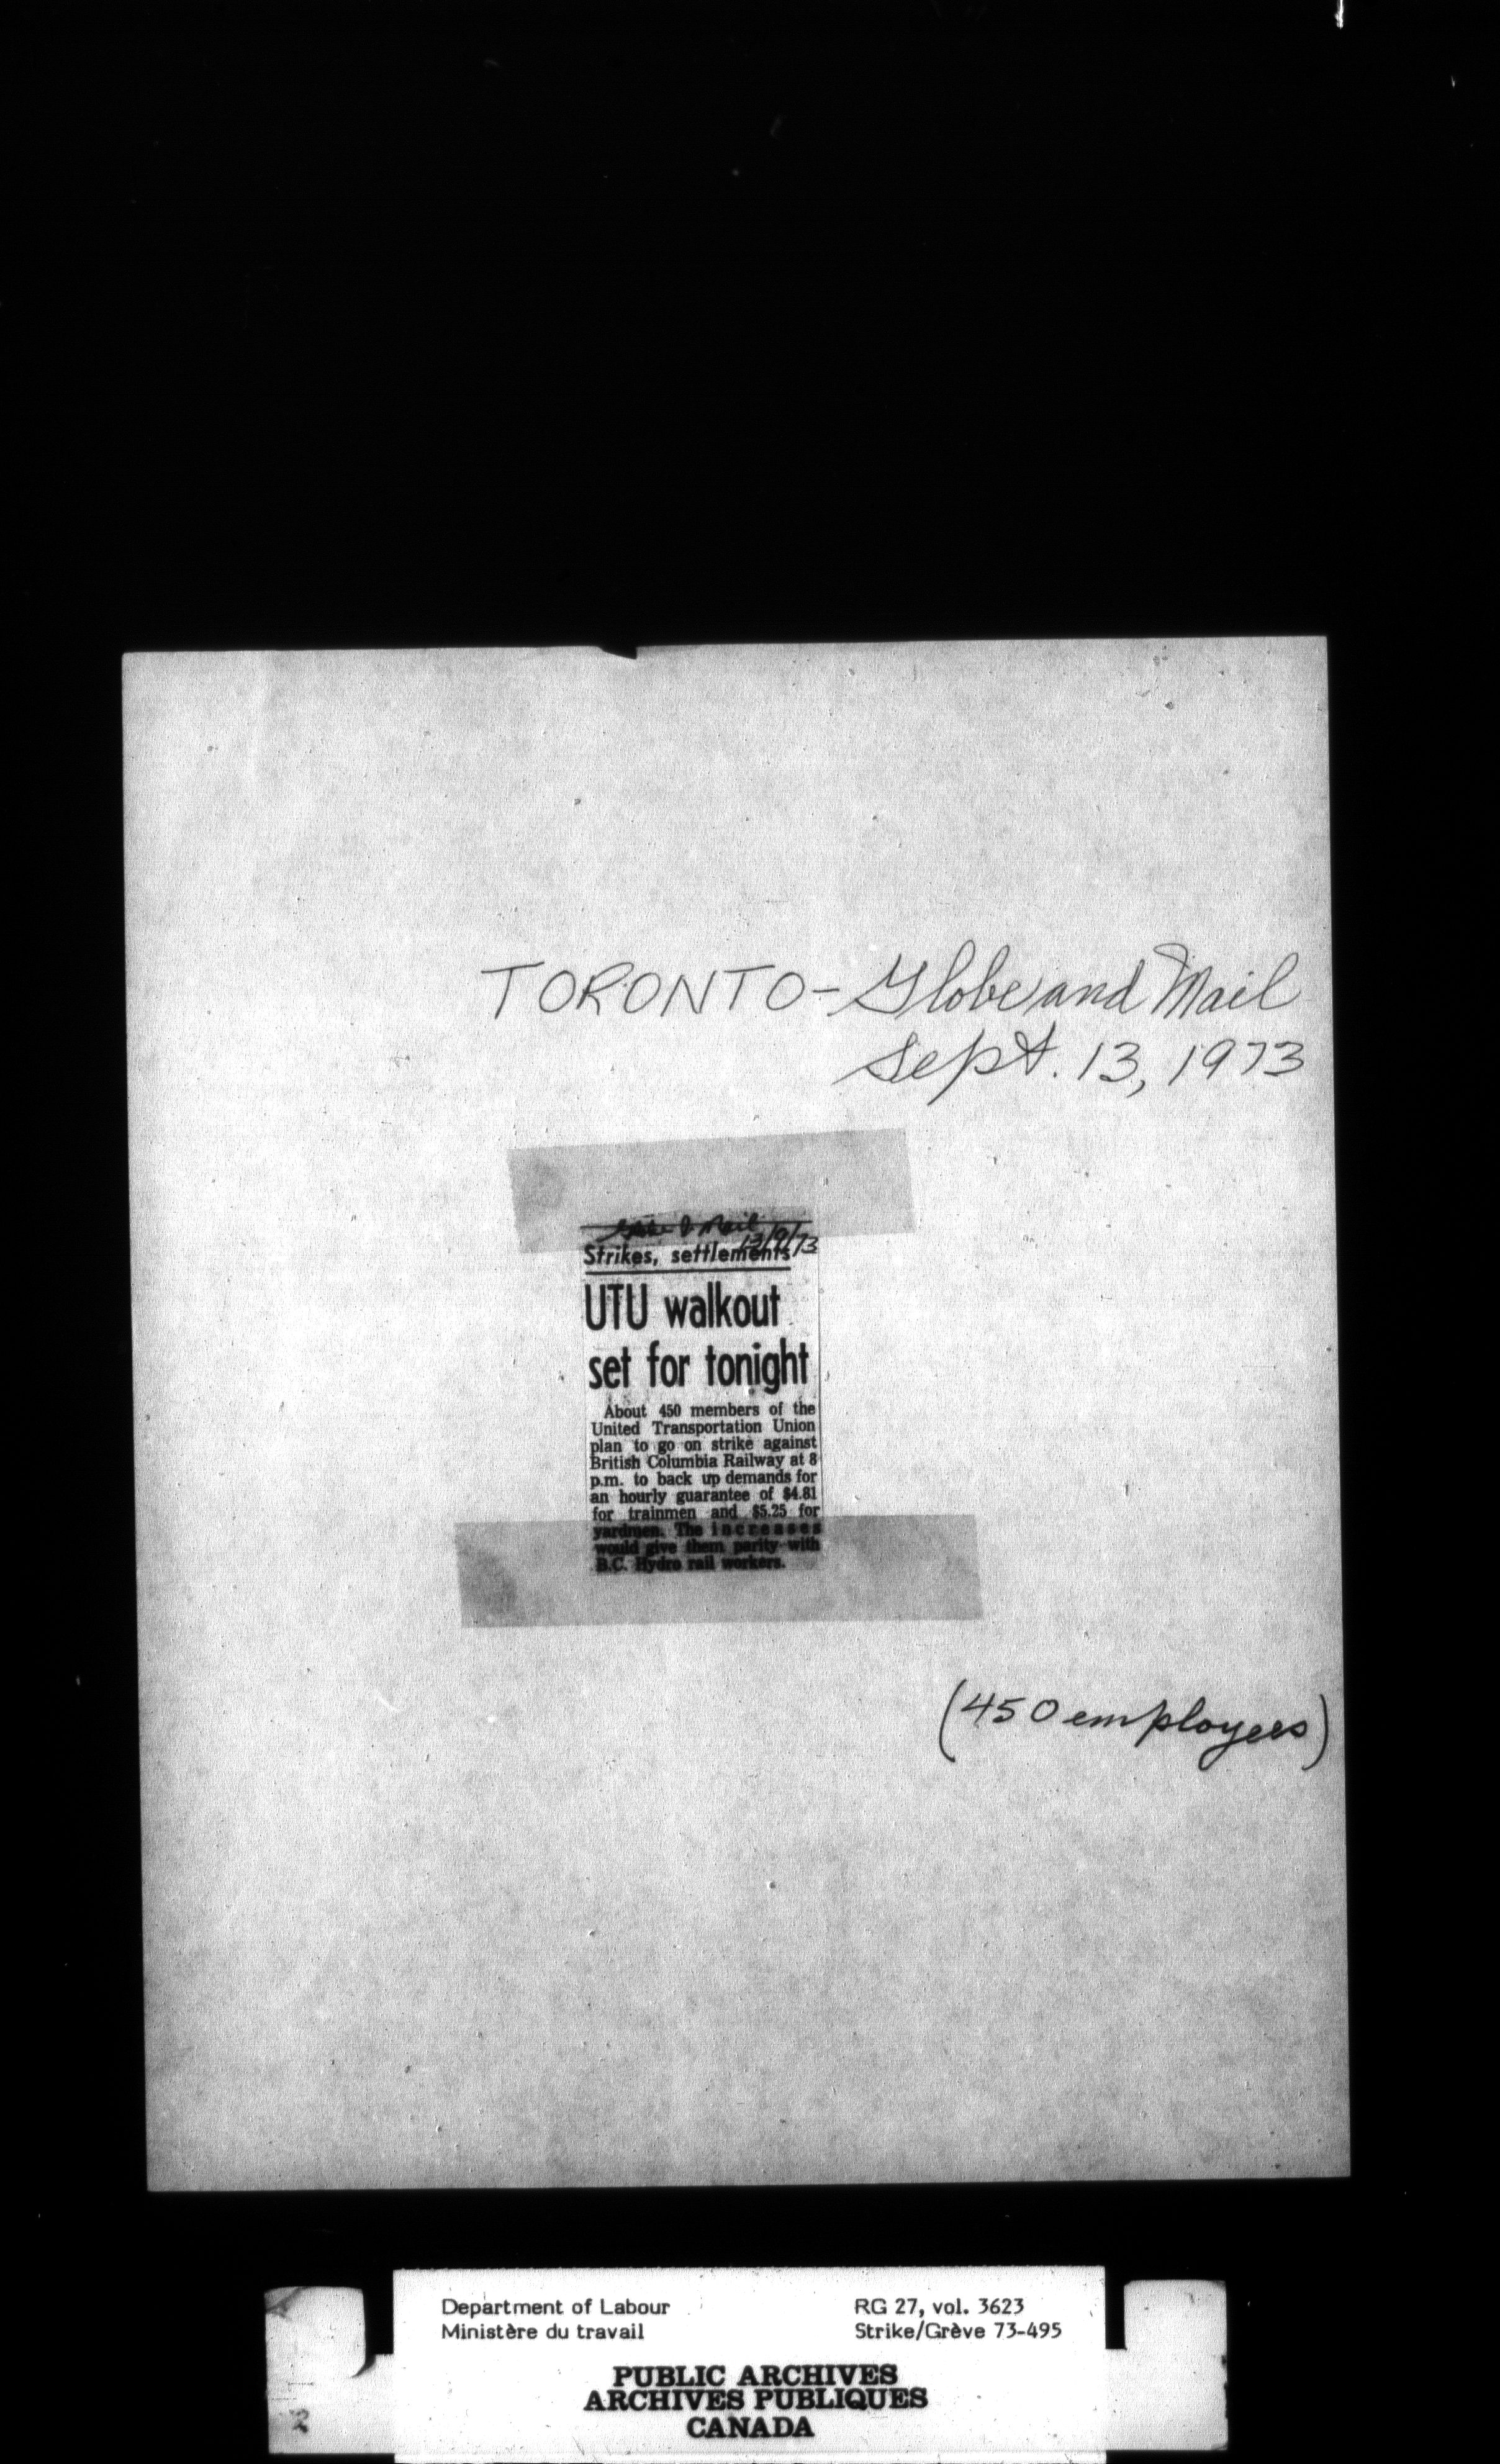 TORONTO - Globe and Mail
Sept. 13, 1973
Globe & Mail
13/9/73
Strikes, settlements
UTU walkout
set for tonight
About 450 members of the
United Transportation Union
plan to go on strike against
British Columbia Railway at 8
p.m. to back up demands for
an hourly guarantee of $4.81
for trainmen and $5.25 for
yardmen. The increases
would give them parity with
B.C. Hydro rail workers.
(450 employees)
Department of Labour
Ministère du travail
RG 27, vol. 3623
Strike/Grève 73-495
PUBLIC ARCHIVES
ARCHIVES PUBLIQUES
CANADA
2